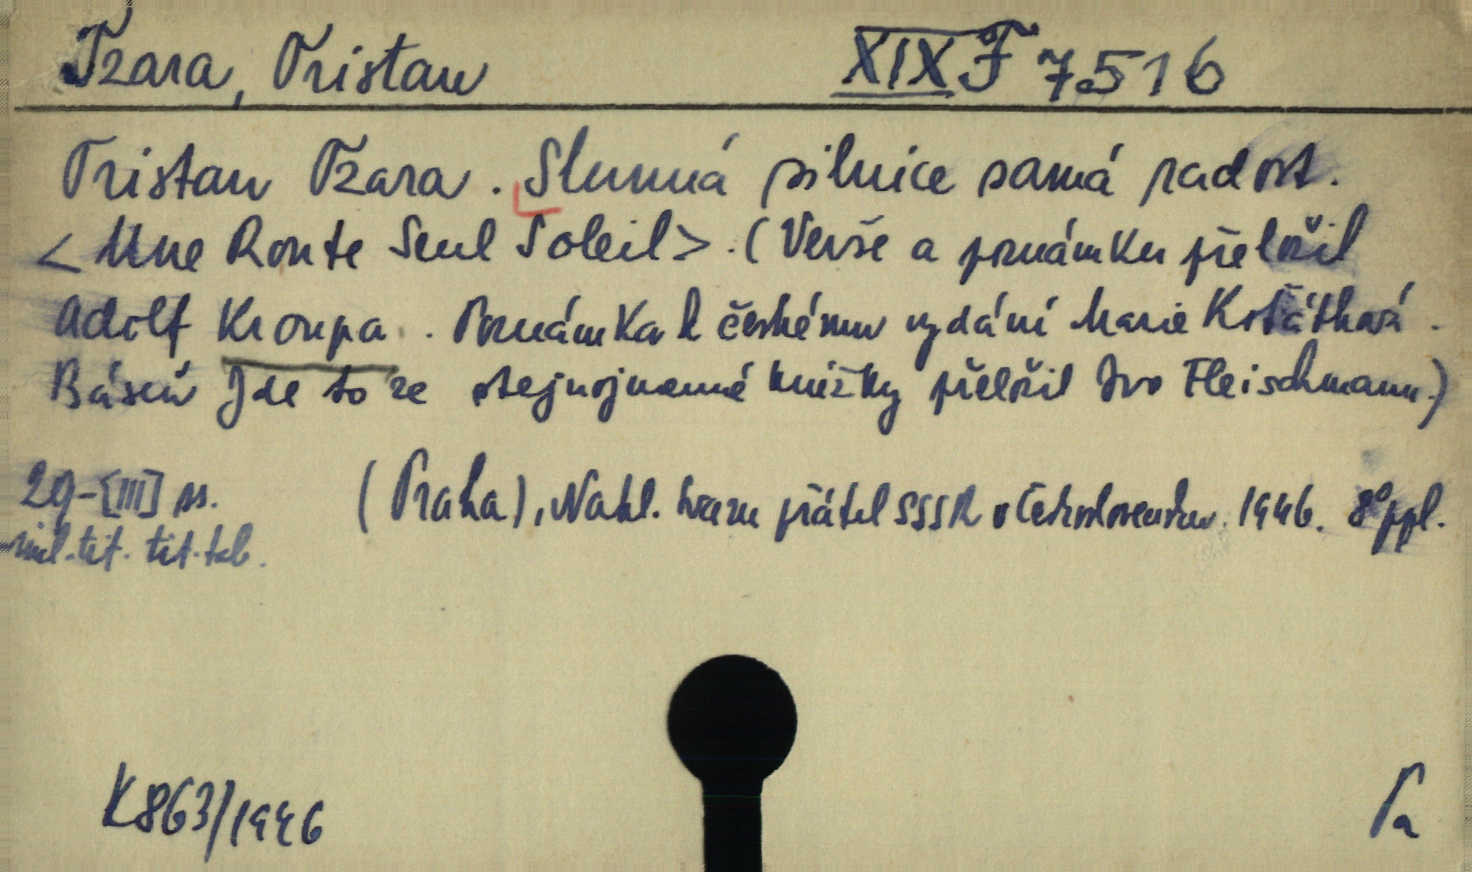 Tzara, Tristan XIX F 7516
Tristan Tzara. Slunná silnice samá radost.
<Une Route Seul Soleil>. (Verše a poznámku přeložil
Adolf Kroupa. Poznámka k českému vydání Marie Košátková.
Báseň Jde to ze stejnojmenné knížky přeložil Ivo Fleischmann.)
29-[III] ss. (Praha), Nakl. Svazu přátel SSSR v Československu. 1946. 8° ppl.
tit. tit. tab.
K863/1946 Pa